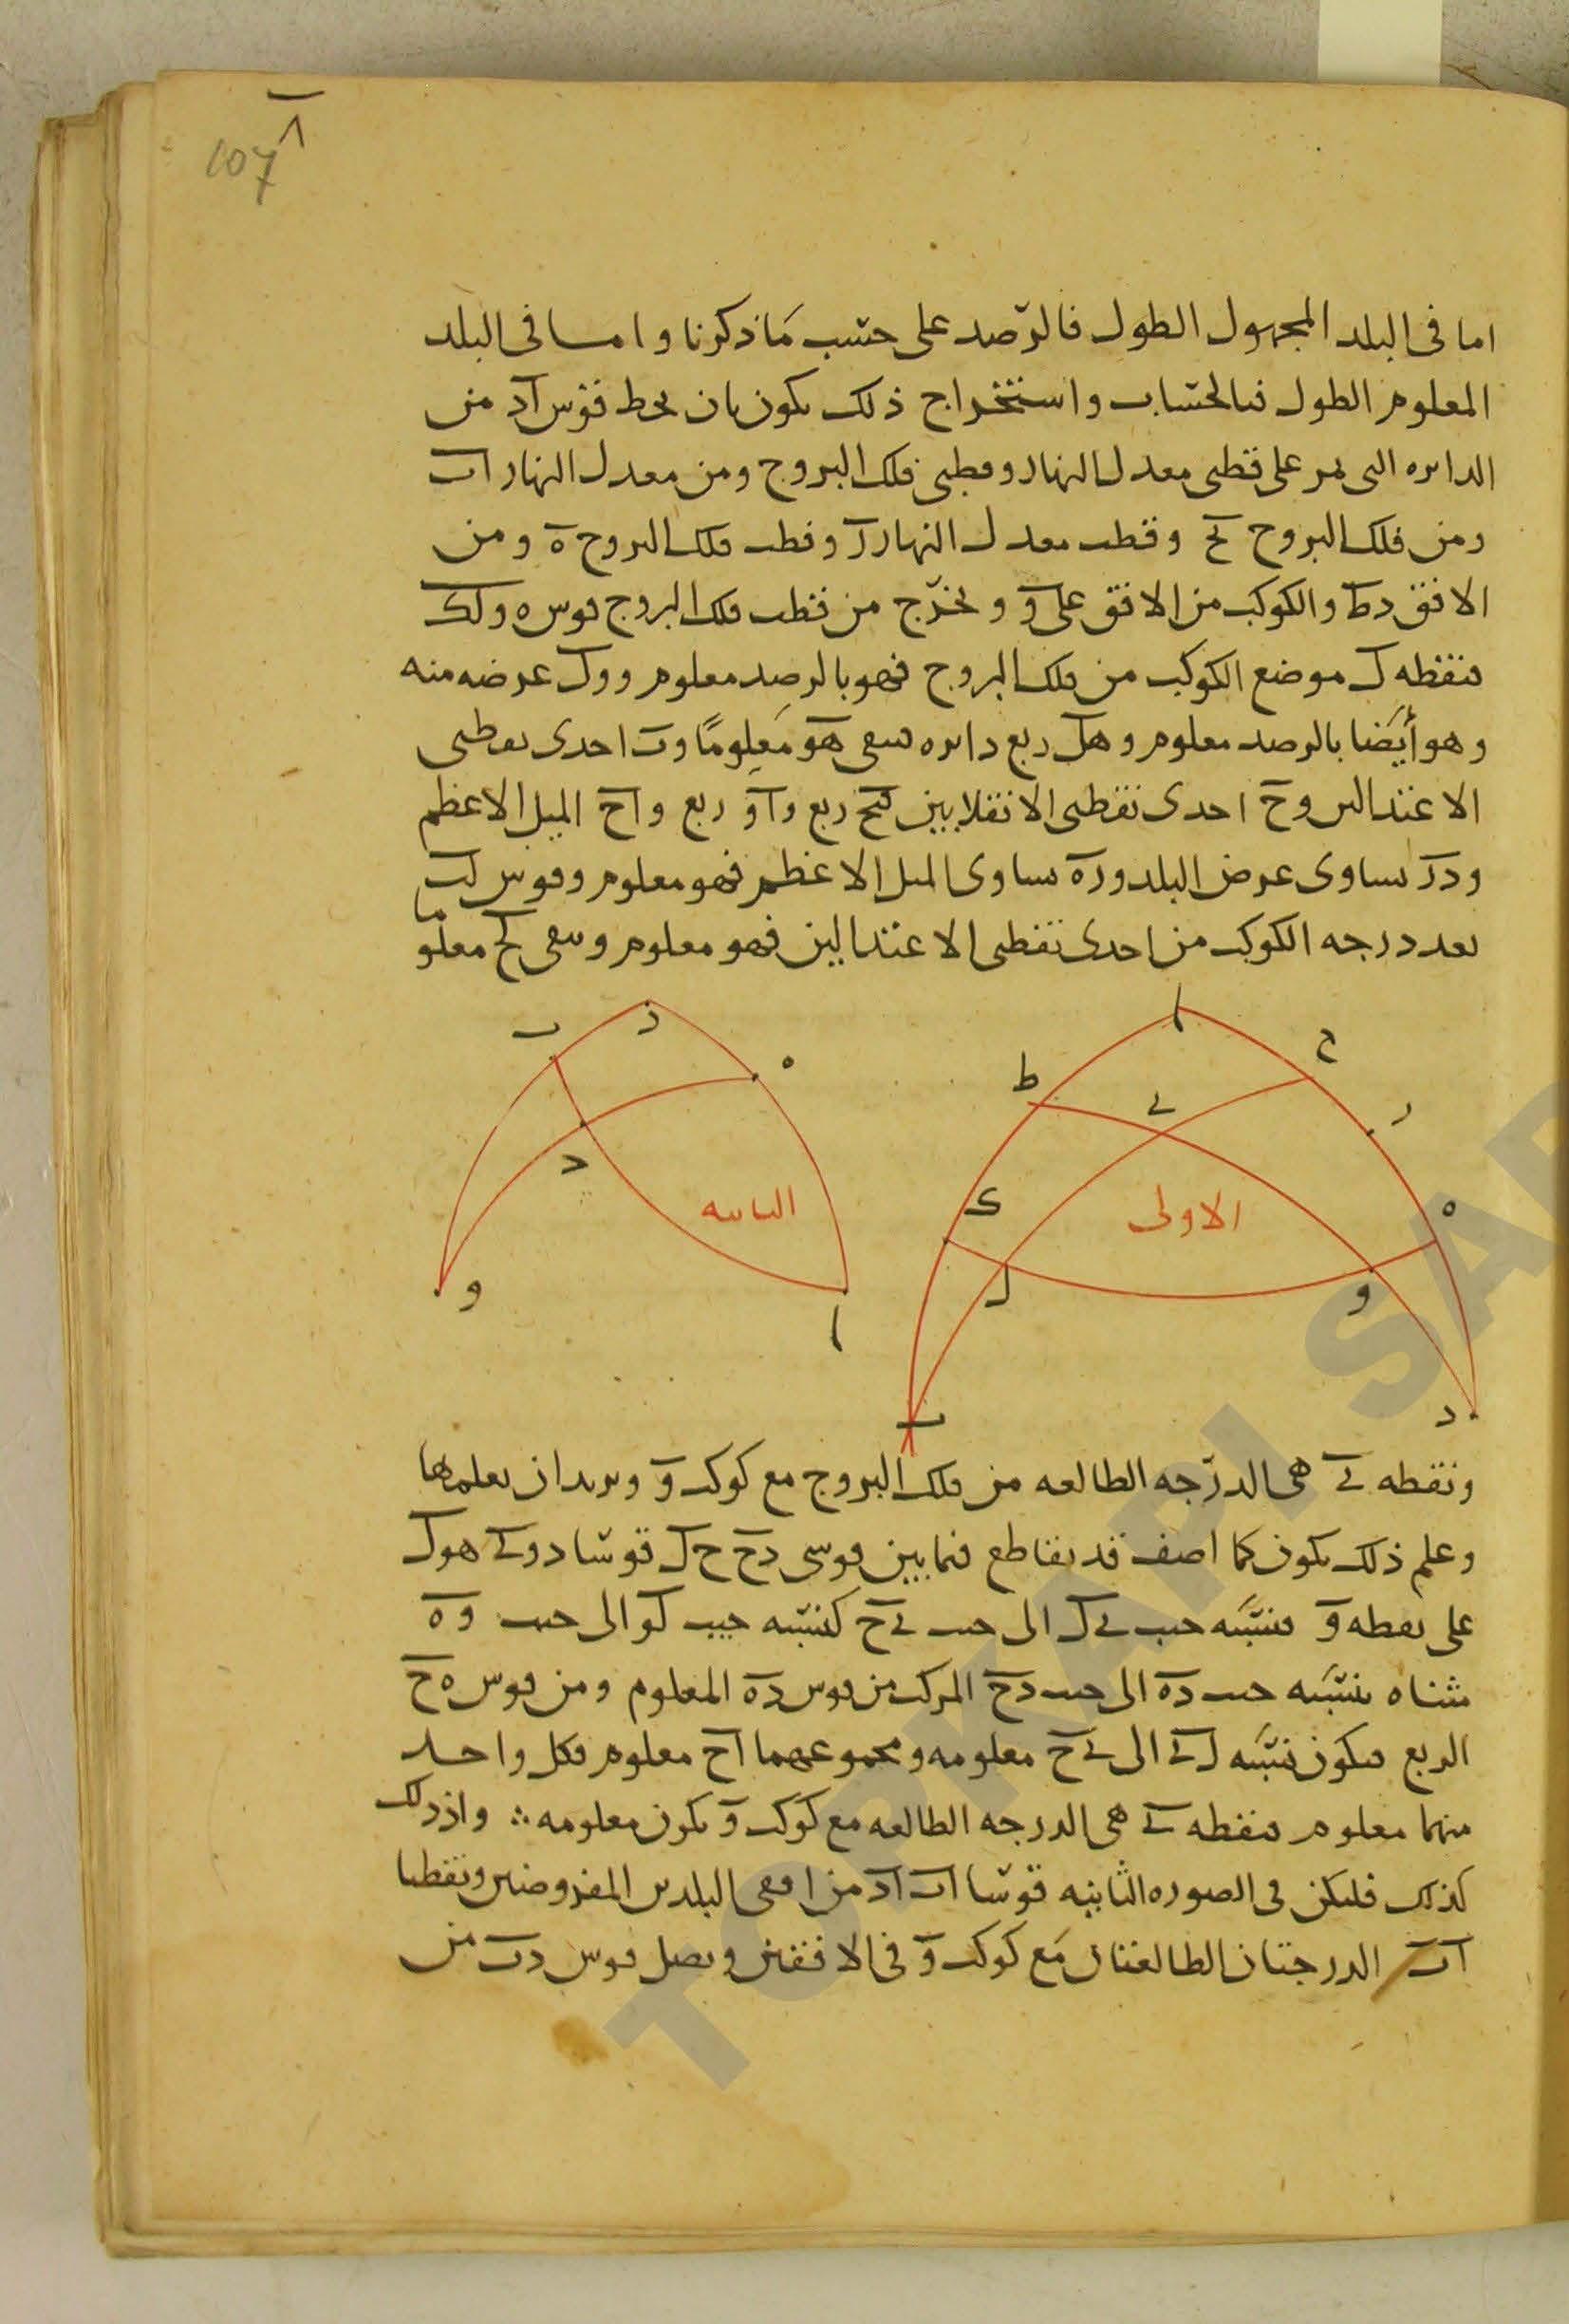 107
اما فى البلد المجهول الطول فالرصد على حسب ما ذكرنا واما فى البلد
المعلوم الطول فبالحساب واستخراج ذلك يكون بان نخط قوس اد من
الدايره التى تمر على قطبى معدل النهار وقطبى فلك البروج ومن معدل النهار اب
ومن فلك البروج بح وقطب معدل النهار ر وقطب فلك البروج ه ومن
الافق دط والكوكب من الافق على و ونخرج من قطب فلك البروج قوس ه ولك
فنقطه ل موضع الكوكب من فلك البروج فهو بالرصد معلوم وول عرضه منه
وهو أيضا بالرصد معلوم وهل ربع دايره فبقى هو معلومًا وب احدى نقطتى
الاعتدال وح احدى نقطتى الانقلابين فبح ربع وا ربع واح الميل الاعظم
ودر يساوى عرض البلد وره يساوى الميل الاعظم فهو معلوم وقوس لب
بعد درجه الكوكب من احدى نقطتى الاعتدالين فهو معلوم وبقى لح معلوما
ا
ح
ط
ى
ر
ك
ه
الاولى
ل
و
ب
د
ر
ب
ه
د
الثانيه
و
ا
ونقطه ى هى الدرجه الطالعه من فلك البروج مع كوكب و ونريد ان نعلمها
وعلم ذلك يكون كما اصف قد تقاطع فيما بين قوسى دح ح ل قوسا دوى هول
على نقطه و فنسبه جيب ى ل الى جيب ى ح كنسبه جيب لو الى جيب وه
مثناه بنسبه جيب ده الى جيب دح المركب من قوس ده المعلوم ومن قوس ه ح
الربع فيكون نسبه لى الى ى ح معلومه ومجموعهما اح معلوم فكل واحد
منهما معلوم فنقطه ى هى الدرجه الطالعه مع كوكب و يكون معلومه ∴ واذ ذلك
كذلك فليكن فى الصوره الثانيه قوسا اب اد من افقى البلدين المفروضين ونقطتا
اب الدرجتان الطالعتان مع كوكب و فى الافقين ونصل قوس دب من